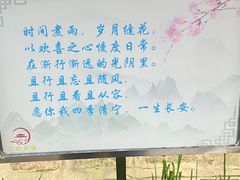 时间煮雨，岁月缝花，
以欢喜之心慢度日常。
在渐行渐远的光阴里。
且行且忘且随风，
且行且看且从容，
愿你我四季清宁，一生长安。